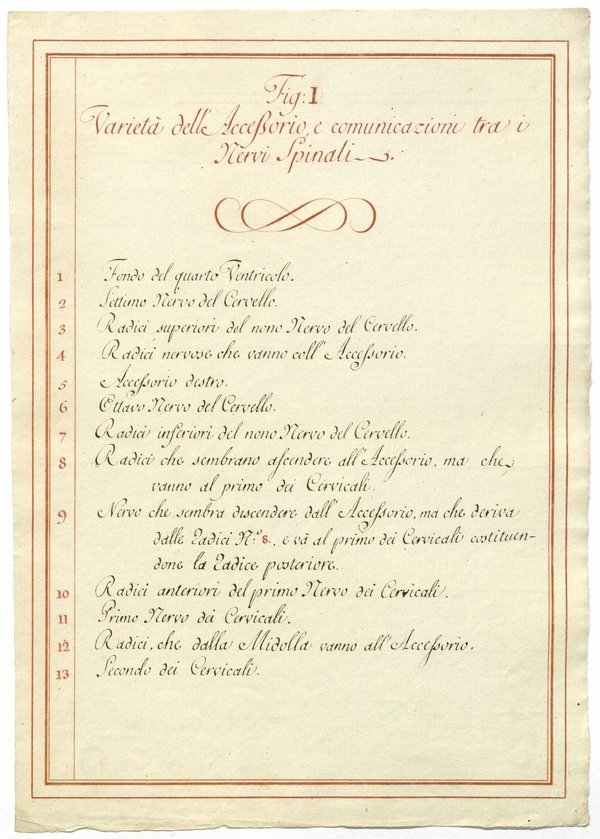 Fig: I
Varietà dell'Accessorio, e comunicazioni tra i
Nervi Spinali.
1 Fondo del quarto Ventricolo.
2 Settimo Nervo del Cervello.
3 Radici superiori del nono Nervo del Cervello.
4 Radici nervose che vanno coll'Accessorio.
5 Accessorio destro.
6 Ottavo Nervo del Cervello.
7 Radici inferiori del nono Nervo del Cervello.
8 Radici che sembrano ascendere all'Accessorio, ma che
vanno al primo dei Cervicali.
9 Nervo che sembra discendere dall'Accessorio, ma che deriva
dalle Radici N.º 8., e và al primo dei Cervicali costituen-
done la Radice posteriore.
10 Radici anteriori del primo Nervo dei Cervicali.
11 Primo Nervo dei Cervicali.
12 Radici, che dalla Midolla vanno all'Accessorio.
13 Secondo dei Cervicali.